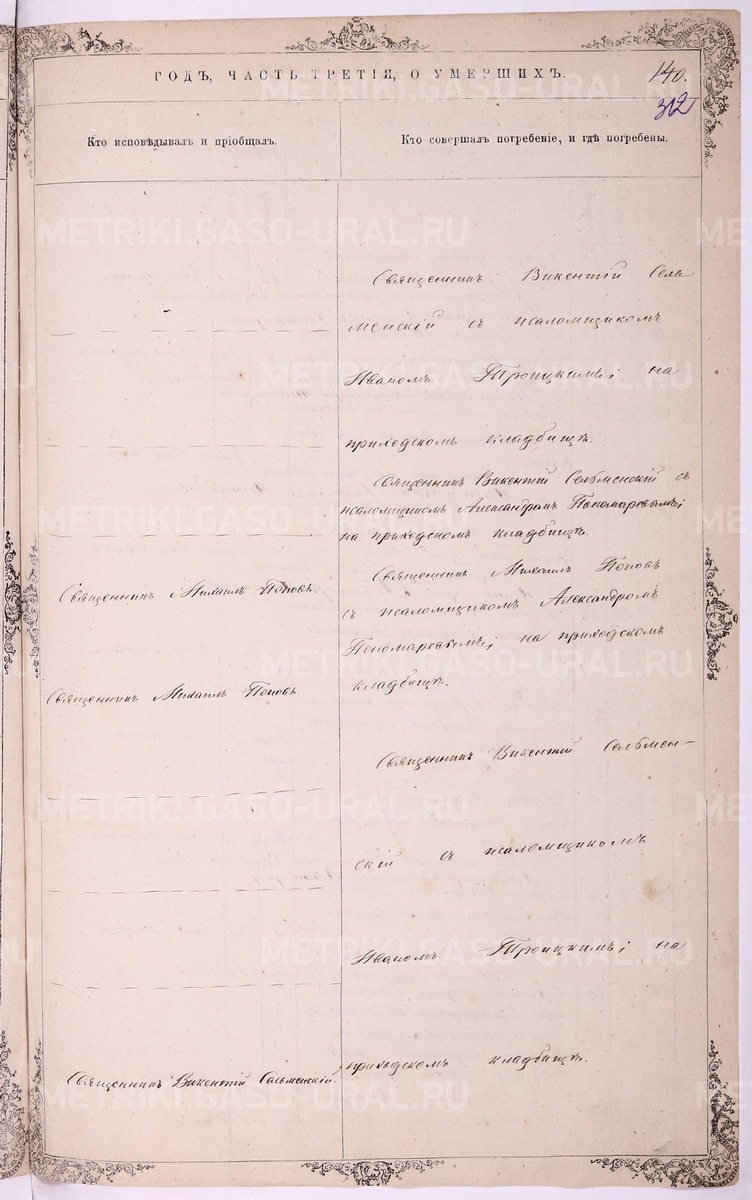 ГОДЪ, ЧАСТЬ ТРЕТІЯ, О УМЕРШИХЪ.
140.
312
Кто исповѣдывалъ и пріобщалъ.
Кто совершалъ погребеніе, и гдѣ погребены.
Священникъ Викентій Сель
менскій съ псаломщикомъ
Иваномъ Троицкимъ; на
приходскомъ кладбищѣ.
Священникъ Викентій Сельменскій съ
псаломщикомъ Александромъ Пономаревымъ;
на приходскомъ кладбищѣ.
Священникъ Михаилъ Поповъ.
Священникъ Михаилъ Поповъ
съ псаломщикомъ Александромъ
Пономаревымъ; на приходскомъ
кладбищѣ.
Священникъ Михаилъ Поповъ
Священникъ Викентій Сельмен-
скій съ псаломщикомъ
Иваномъ Троицкимъ; на
приходскомъ кладбищѣ.
Священникъ Викентій Сельменскій
METRIKI.GASO-URAL.RU